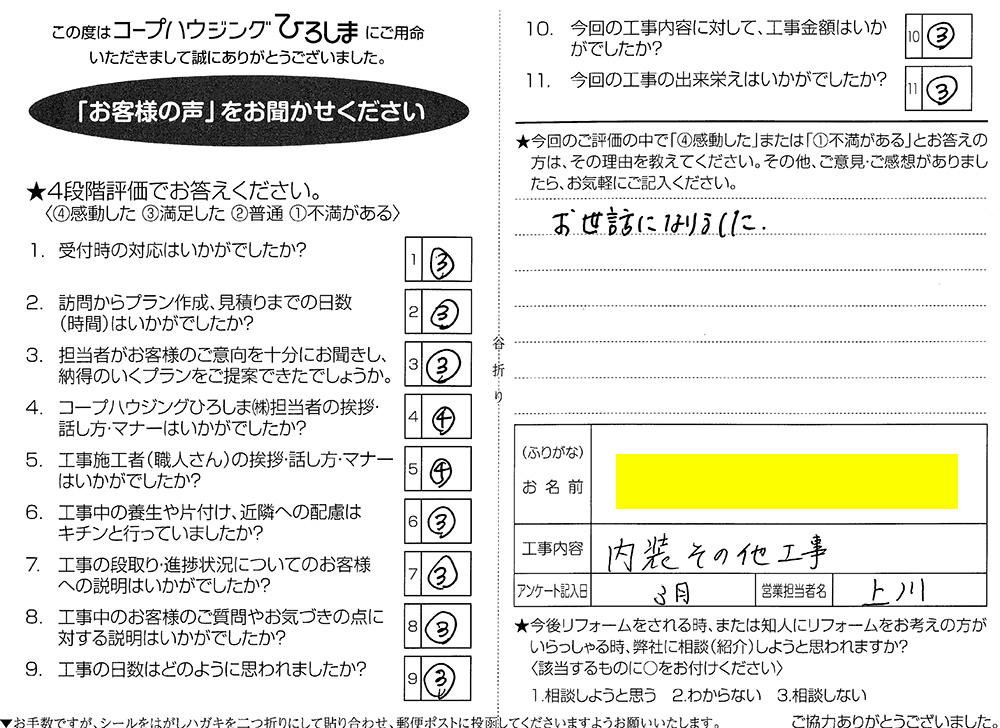 この度はコープハウジングひろしまにご用命
いただきまして誠にありがとうございました。
「お客様の声」をお聞かせください
★4段階評価でお答えください。
〈④感動した ③満足した ②普通 ①不満がある〉
1. 受付時の対応はいかがでしたか? 1 ③
2. 訪問からプラン作成、見積りまでの日数
(時間)はいかがでしたか? 2 ③
3. 担当者がお客様のご意向を十分にお聞きし、
納得のいくプランをご提案できたでしょうか。 3 ③
4. コープハウジングひろしま㈱担当者の挨拶・
話し方・マナーはいかがでしたか? 4 ④
5. 工事施工者(職人さん)の挨拶・話し方・マナー
はいかがでしたか? 5 ④
6. 工事中の養生や片付け、近隣への配慮は
キチンと行っていましたか? 6 ③
7. 工事の段取り・進捗状況についてのお客様
への説明はいかがでしたか? 7 ③
8. 工事中のお客様のご質問やお気づきの点に
対する説明はいかがでしたか? 8 ③
9. 工事の日数はどのように思われましたか? 9 ③
▼お手数ですが、シールをはがしハガキを二つ折りにして貼り合わせ、郵便ポストに投函してくださいますようお願いいたします。
谷折り
10. 今回の工事内容に対して、工事金額はいか
がでしたか? 10 ③
11. 今回の工事の出来栄えはいかがでしたか? 11 ③
★今回のご評価の中で「④感動した」または「①不満がある」とお答えの
方は、その理由を教えてください。その他、ご意見・ご感想がありまし
たら、お気軽にご記入ください。
お世話になりました.
(ふりがな)
お名前
工事内容 内装その他工事
アンケート記入日 3月 営業担当者名 上川
★今後リフォームをされる時、または知人にリフォームをお考えの方が
いらっしゃる時、弊社に相談(紹介)しようと思われますか?
〈該当するものに○をお付けください〉
1.相談しようと思う 2.わからない 3.相談しない
ご協力ありがとうございました。